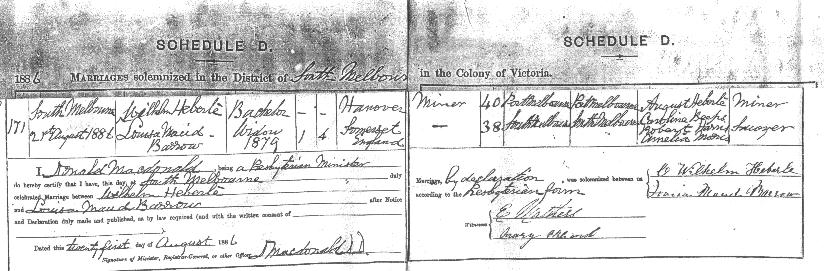 SCHEDULE D.
1886 MARRIAGES solemnized in the District of South Melbourne
171 South Melbourne Wilhelm Heberle Bachelor - - Hanover
21st August 1886 Louisa Maud Barrow Widow 1879 1 4 Somerset England
I, Donald Macdonald being a Presbyterian Minister
do hereby certify that I have, this day, at South Melbourne duly
celebrated Marriage between Wilhelm Heberle
and Louisa Maud Barrow after Notice
and Declaration duly made and published, as by law required (and with the written consent of
Dated this twenty first day of August 1886
Signature of Minister, Registrar-General, or other Officer D Macdonald
SCHEDULE D.
in the Colony of Victoria.
Miner 40 Port Melbourne Port Melbourne August Heberle Miner
Caroline
- 38 South Melbourne South Melbourne Robert Harris Lawyer
Marriage, by declaration was solemnized between us Wilhelm Heberle
according to the Presbyterian form Louisa Maud Barrow
Witnesses
Mary